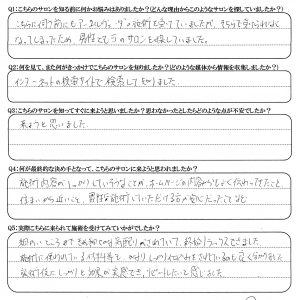 Q1:こちらのサロンを知る前に何かお悩みはありましたか?(どんな理由からこのようなサロンを探していましたか?)
こちらに伺う前にも
の施術を受けていましたが、そちらで受けられなく
なってしまったため、男性
サロンを探していました。
Q2:何を見て、また何がきっかけでこちらのサロンを知りましたか?(どのような媒体から情報を収集しましたか?)
インターネットの検索サイトで検索して知りました。
Q3:こちらのサロンを知ってすぐに来ようと思いましたか?思わなかったとしたらどのような点が不安でしたか?
来ようと思いました。
Q4:何が最終的な決め手となって、こちらのサロンに来ようと思われましたか?
施術内容がしっかりしていそうなことが、ホームページの内容からよく伝わってきたこと
住まいから近いこと、男性も施術していただける
Q5:実際こちらに来られて施術を受けてみていかがでしたか?
細かいところまで
気配りがされていて、終始リラックスできました。
施術に使われている
施術後にしっかりと効果が実感でき、リピートしたいと感じました